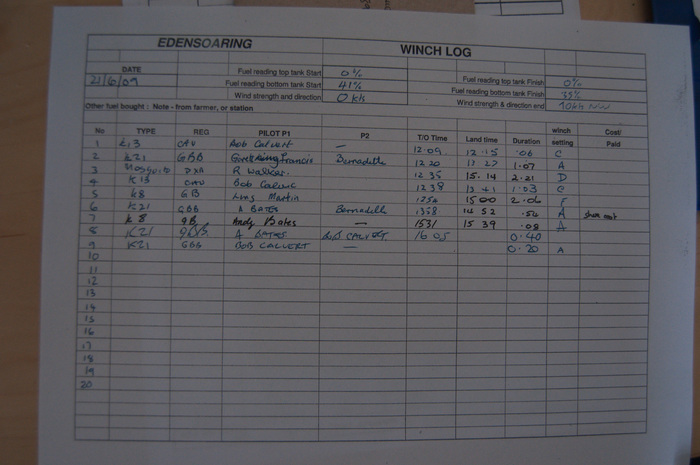 EDENSOARING WINCH LOG
DATE Fuel reading top tank Start 0% Fuel reading top tank Finish 0%
21/6/09 Fuel reading bottom tank Start 41% Fuel reading bottom tank Finish 35%
Wind strength and direction 0 kts Wind strength & direction end 10kts NW
Other fuel bought : Note - from farmer, or station
No TYPE REG PILOT P1 P2 T/O Time Land time Duration winch setting Cost/ Paid
1 K13 Bob Calvert — 12.09 12 15 .06 C
2 K21 GBB Francis Bernadette 12 20 1.07 A
3 Mosquito DXA R Walker. 12 35 15.14 2.21 D
4 K13 Bob Calvert 1238 1.03 C
5 K8 GB Martin 1254 1500 2.06 F
6 K21 GBB A BATES Bernadette 1358 14 52 .54 A
7 K8 GB Andy Bates — 1531 15 39 .08 A
8 K21 A BATES BOB CALVERT 16 05 0.40
9 K21 GBB BOB CALVERT — 0.20 A
10
11
12
13
14
15
16
17
18
19
20